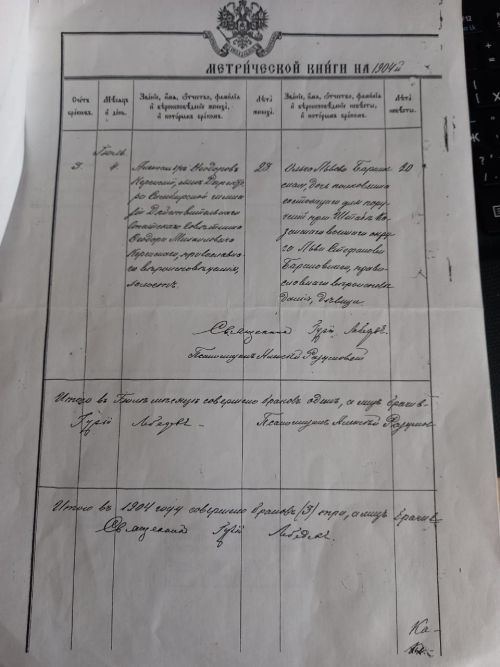 МЕТРИ́ЧЕСКОЙ КНИ́ГИ НА 1904й
Счетъ браковъ.
Мѣсяцъ и день.
Званіе, имя, отчество, фамилія и вѣроисповѣданіе жениха, и которымъ бракомъ.
Лѣта жениха.
Званіе, имя, отчество, фамилія и вѣроисповѣданіе невѣсты, и которымъ бракомъ.
Лѣта невѣсты.
3.
Іюль
4.
Александръ Ѳеодоров
Керенскій, сынъ Директо
ра Симбирской гимна
зіи Дѣйствительнаго
Статскаго Совѣтника
Ѳеодора Михайлова
Керенскаго, православна
го вѣроисповѣданія,
холостъ.
23
Ольга Львова Баранов
ская, дочь полковника
состоящаго для пору
ченій при Штабѣ Ка
занскаго военнаго окру
га Льва Степанова
Барановскаго, право
славнаго вѣроисповѣ
данія, дѣвица
20
Священникъ Гурій Лебедевъ
Псаломщикъ Алексѣй Разумовъ
Итого въ Іюлѣ мѣсяцѣ совершено браковъ одинъ, а лицъ брачив-
Гурій Лебедевъ Псаломщикъ Алексѣй Разумов
Итого въ 1904 году совершено браковъ (3) три, а лицъ брачив-
Священникъ Гурій Лебедевъ.
Ка-